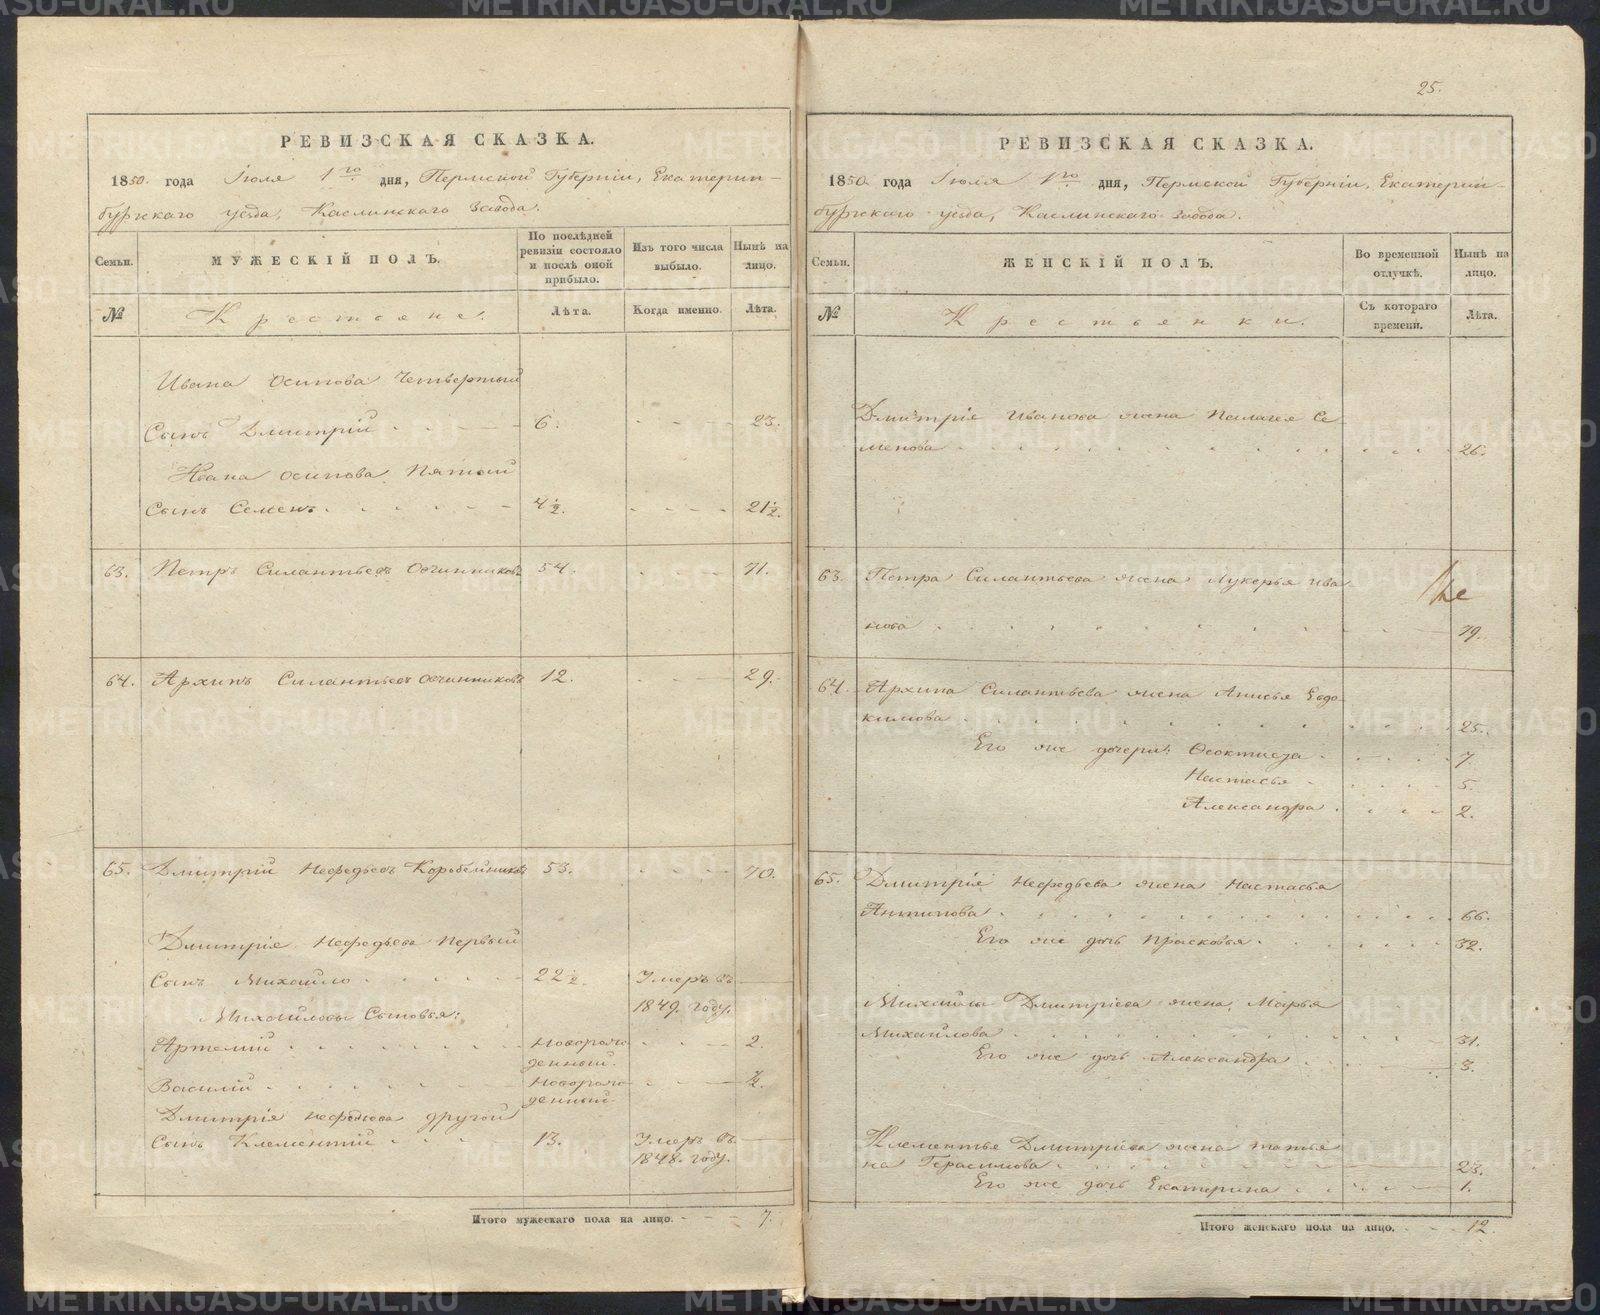 РЕВИЗСКАЯ СКАЗКА.
1850 года Іюля 1го дня, Пермской Губерніи, Екатерин-
бургскаго уезда, Каслинскаго Завода.
Семьи.
МУЖЕСКІЙ ПОЛЪ.
По послѣдней ревизіи состояло и послѣ оной прибыло.
Изъ того числа выбыло.
Нынѣ на лицо.
№
Крестьяне.
Лѣта.
Когда именно.
Лѣта.
Ивана Осипова Четвертый
Сынъ Дмитрій 6. 23.
Ивана Осипова Пятый
Сынъ Семенъ 4½. 21½.
63. Петръ Силантьевъ Овчинниковъ 54. 71.
64. Архипъ Силантьевъ Овчинниковъ 12. 29.
65. Дмитрій Нефедьевъ Коробейниковъ 53. 70.
Дмитрія Нефедьева Первый
Сынъ Михайло 22½. Умеръ въ
1849. году.
Михайловы Сыновья:
Артемій Новорож- 2.
денный.
Василій Новорож- ½.
денный.
Дмитрія Нефедьева другой
Сынъ Клементій 13. Умеръ въ
1848. году.
Итого мужескаго пола на лицо. 7.
25.
РЕВИЗСКАЯ СКАЗКА.
1850 года Іюля 1го дня, Пермской Губерніи, Екатерин-
бургскаго уезда, Каслинскаго завода.
Семьи.
ЖЕНСКІЙ ПОЛЪ.
Во временной отлучкѣ.
Нынѣ на лицо.
№
Крестьянки.
Съ котораго времени.
Лѣта.
Дмитрія Иванова жена Палагея Се
менова 26.
63. Петра Силантьева жена Лукерья Ива
нова 79.
64. Архипа Силантьева жена Анисья Евдо-
кимова 25.
Его же дочери: Ѳеоктиста 7.
Настасья 5.
Александра 2.
65. Дмитрія Нефедьева жена Настасья
Антипова 66.
Его же дочь Прасковья 32.
Михайлы Дмитріева жена Марья
Михайлова 31.
Его же дочь Александра 3.
Клементья Дмитріева жена Татья
на Герасимова 23.
Его же дочь Екатерина 1.
Итого женскаго пола на лицо. 12.
METRIKI.GASO-URAL.RU